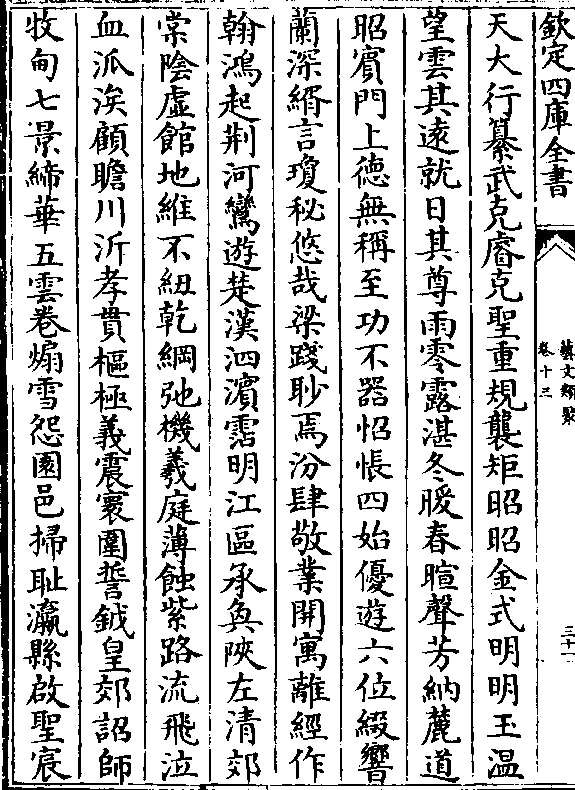 欽定四庫全書
藝文類聚
卷十三
三十一
天大行纂武克睿克聖重規襲矩昭昭金式明明玉温
望雲其遠就日其尊雨零露湛冬暖春暄聲芳納麓道
昭賓門上德無稱至功不器怊悵四始優遊六位綴響
蘭深縟言瓊秘悠哉梁踐眇焉汾肆敬業開寓離經作
翰鴻起荆河鸞遊楚漢泗濱霑明江區承奐陜左清郊
棠陰虛館地維不紐乾綱弛機羲庭薄蝕紫路流飛泣
血派涘顧瞻川沂孝貫樞極義震寰圍誓鉞皇郊詔師
牧甸七景締華五雲卷煽雪怨園邑掃恥瀛縣啟聖宸